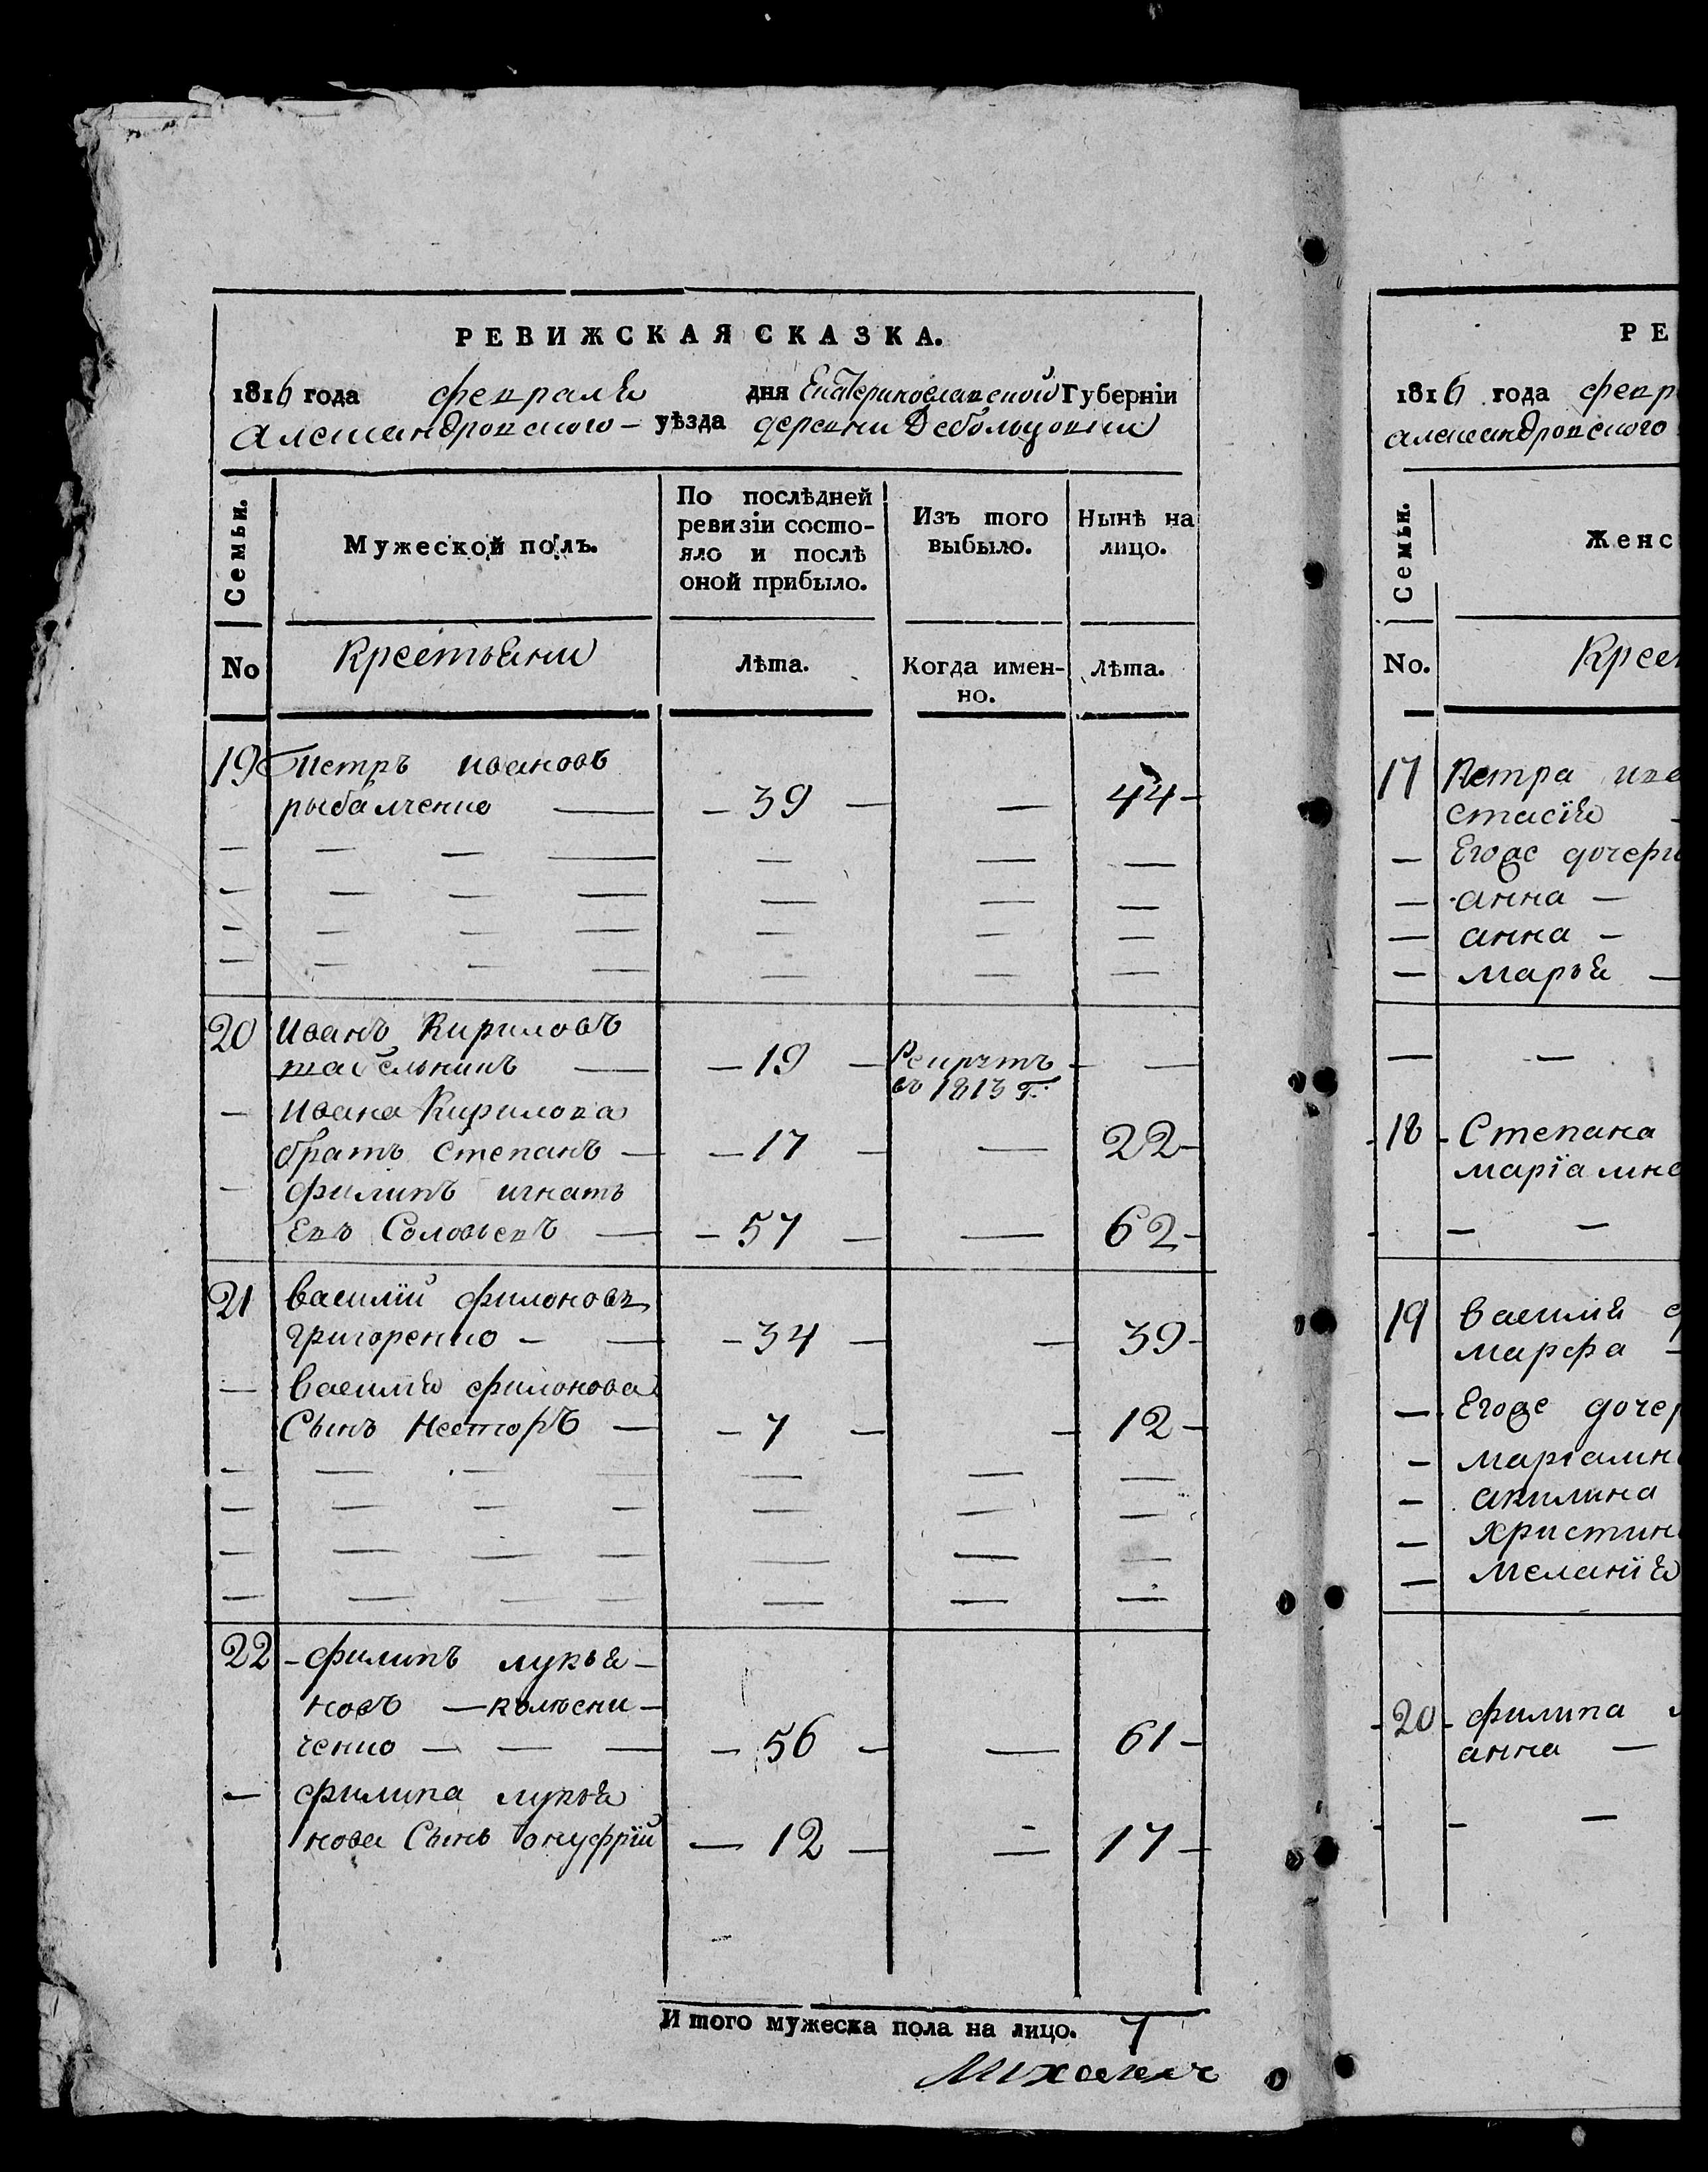 РЕВИЖСКАЯ СКАЗКА.
1816 года февраля дня Екатеринославской Губерніи
Александровского уѣзда деревни Дебольцовки
Семьи.
Мужеской полъ.
По послѣдней ревизіи состо-
яло и послѣ
оной прибыло.
Изъ того
выбыло.
Нынѣ на
лицо.
No
Крестьяни
Лѣта.
Когда имен-
но.
Лѣта.
19 Петръ ивановъ
рыбалченко — 39 — — 44
20 Иванъ Кириловъ
— 19 — Рекрутъ —
въ 1813 Г:
— Ивана Кирилова
братъ Степанъ — 17 — — 22
— филипъ игнать
евъ Соловьевъ — 57 — — 62
21 василий филоновъ
григоренко — 34 — — 39
— василия филонова
Сынъ Несторъ — 7 — — 12
22 филипъ лукья-
новъ — колесни-
ченко — 56 — — 61
— филипа лукья
нова Сынъ онуфрий — 12 — — 17
Итого мужеска пола на лицо. 7
РЕ
1816 года февр
александровского
Семьи.
Женс
No.
Крест
17 Петра ива
стасія
— Егоже дочери
— анна —
— анна —
— марья —
— —
18 Степана
маріамна
— —
19 василия ф
марфа —
— Егоже дочер
— маріамн
— акилина
— христин
— меланія
20 филипа л
анна —
— —